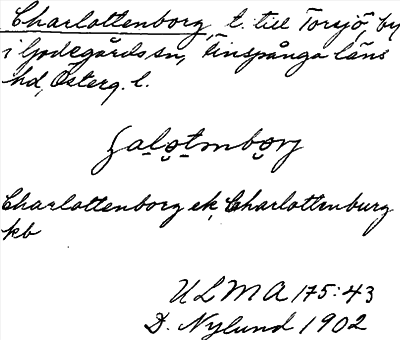 Charlottenborg, t. till Torsjö, by
i Godegårds sn, Finspånga läns
hd, Österg. l.
Charlottenborg ek, Charlottenburg
kb
ULMA 175:43
D. Nylund 1902